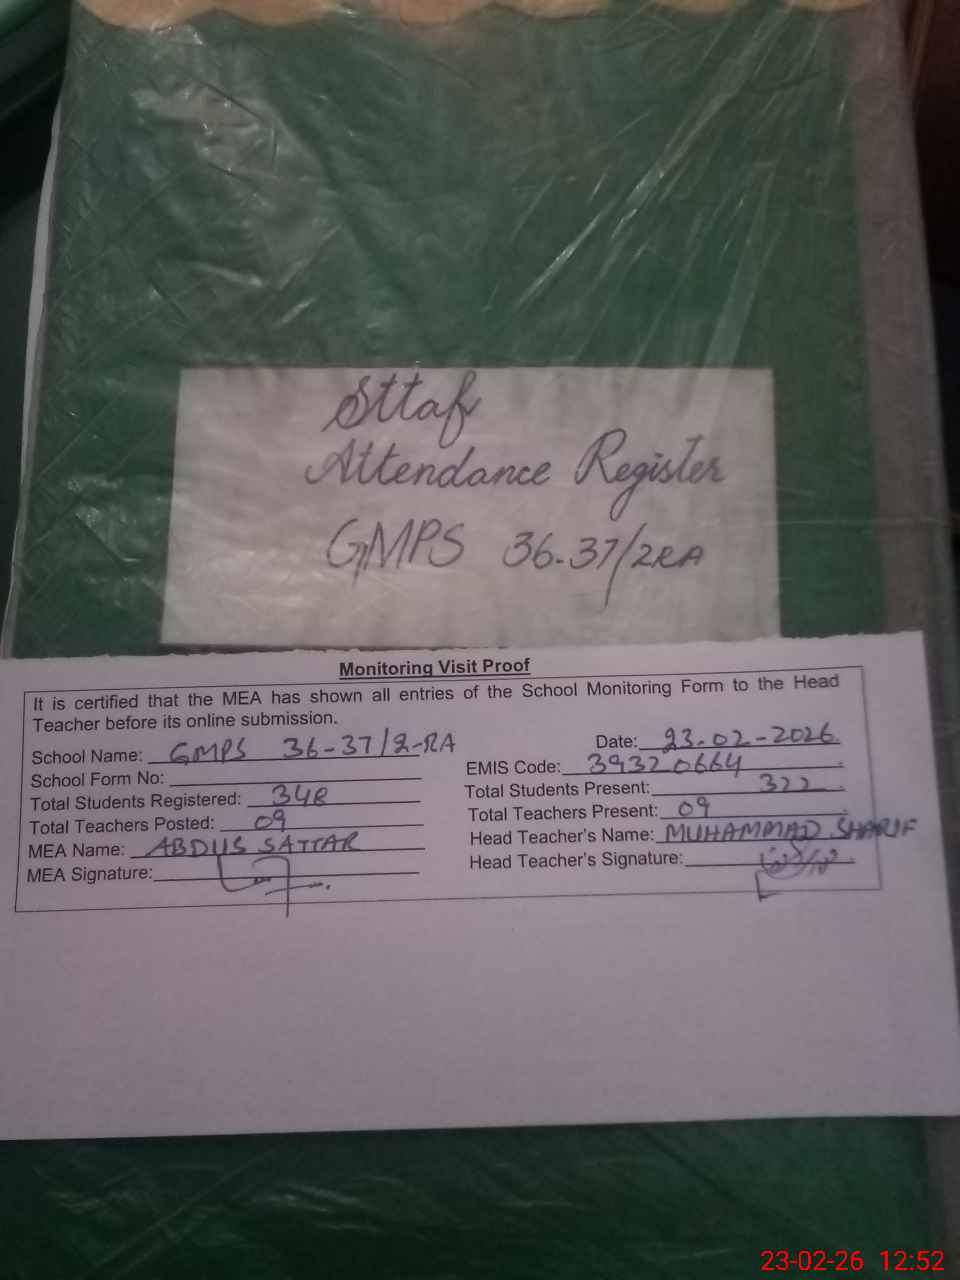 Sttaf
Attendance Register
GMPS 36-37/2RA
Monitoring Visit Proof
It is certified that the MEA has shown all entries of the School Monitoring Form to the Head
Teacher before its online submission.
School Name: GMPS 36-37/2-RA Date: 23-02-2026
School Form No: EMIS Code: 39320664
Total Students Registered: 348 Total Students Present: 322
Total Teachers Posted: 09 Total Teachers Present: 09
MEA Name: ABDUS SATTAR Head Teacher's Name: MUHAMMAD SHARIF
MEA Signature: Head Teacher's Signature:
23-02-26 12:52